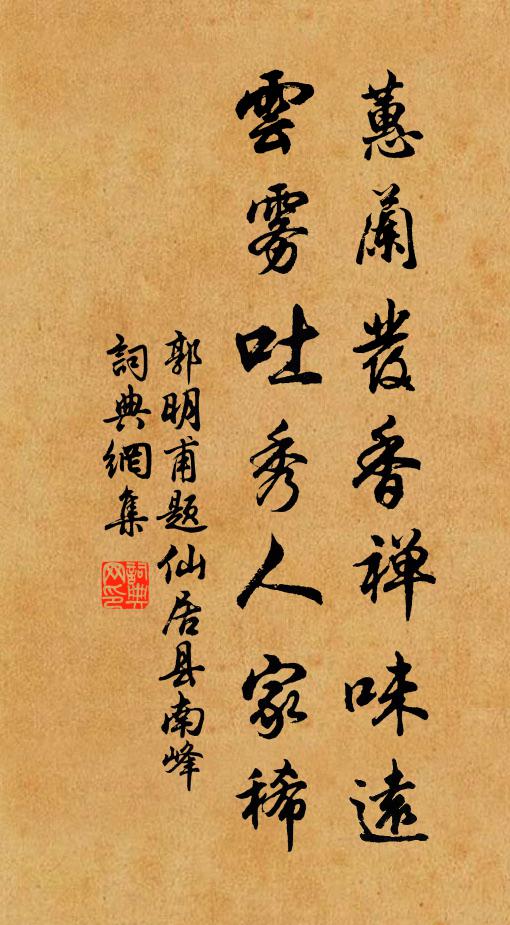 蕙蘭發香禅味遠
雲雾吐秀人家稀
郭明甫题仙居县南峰
詞典網集
詞典網印